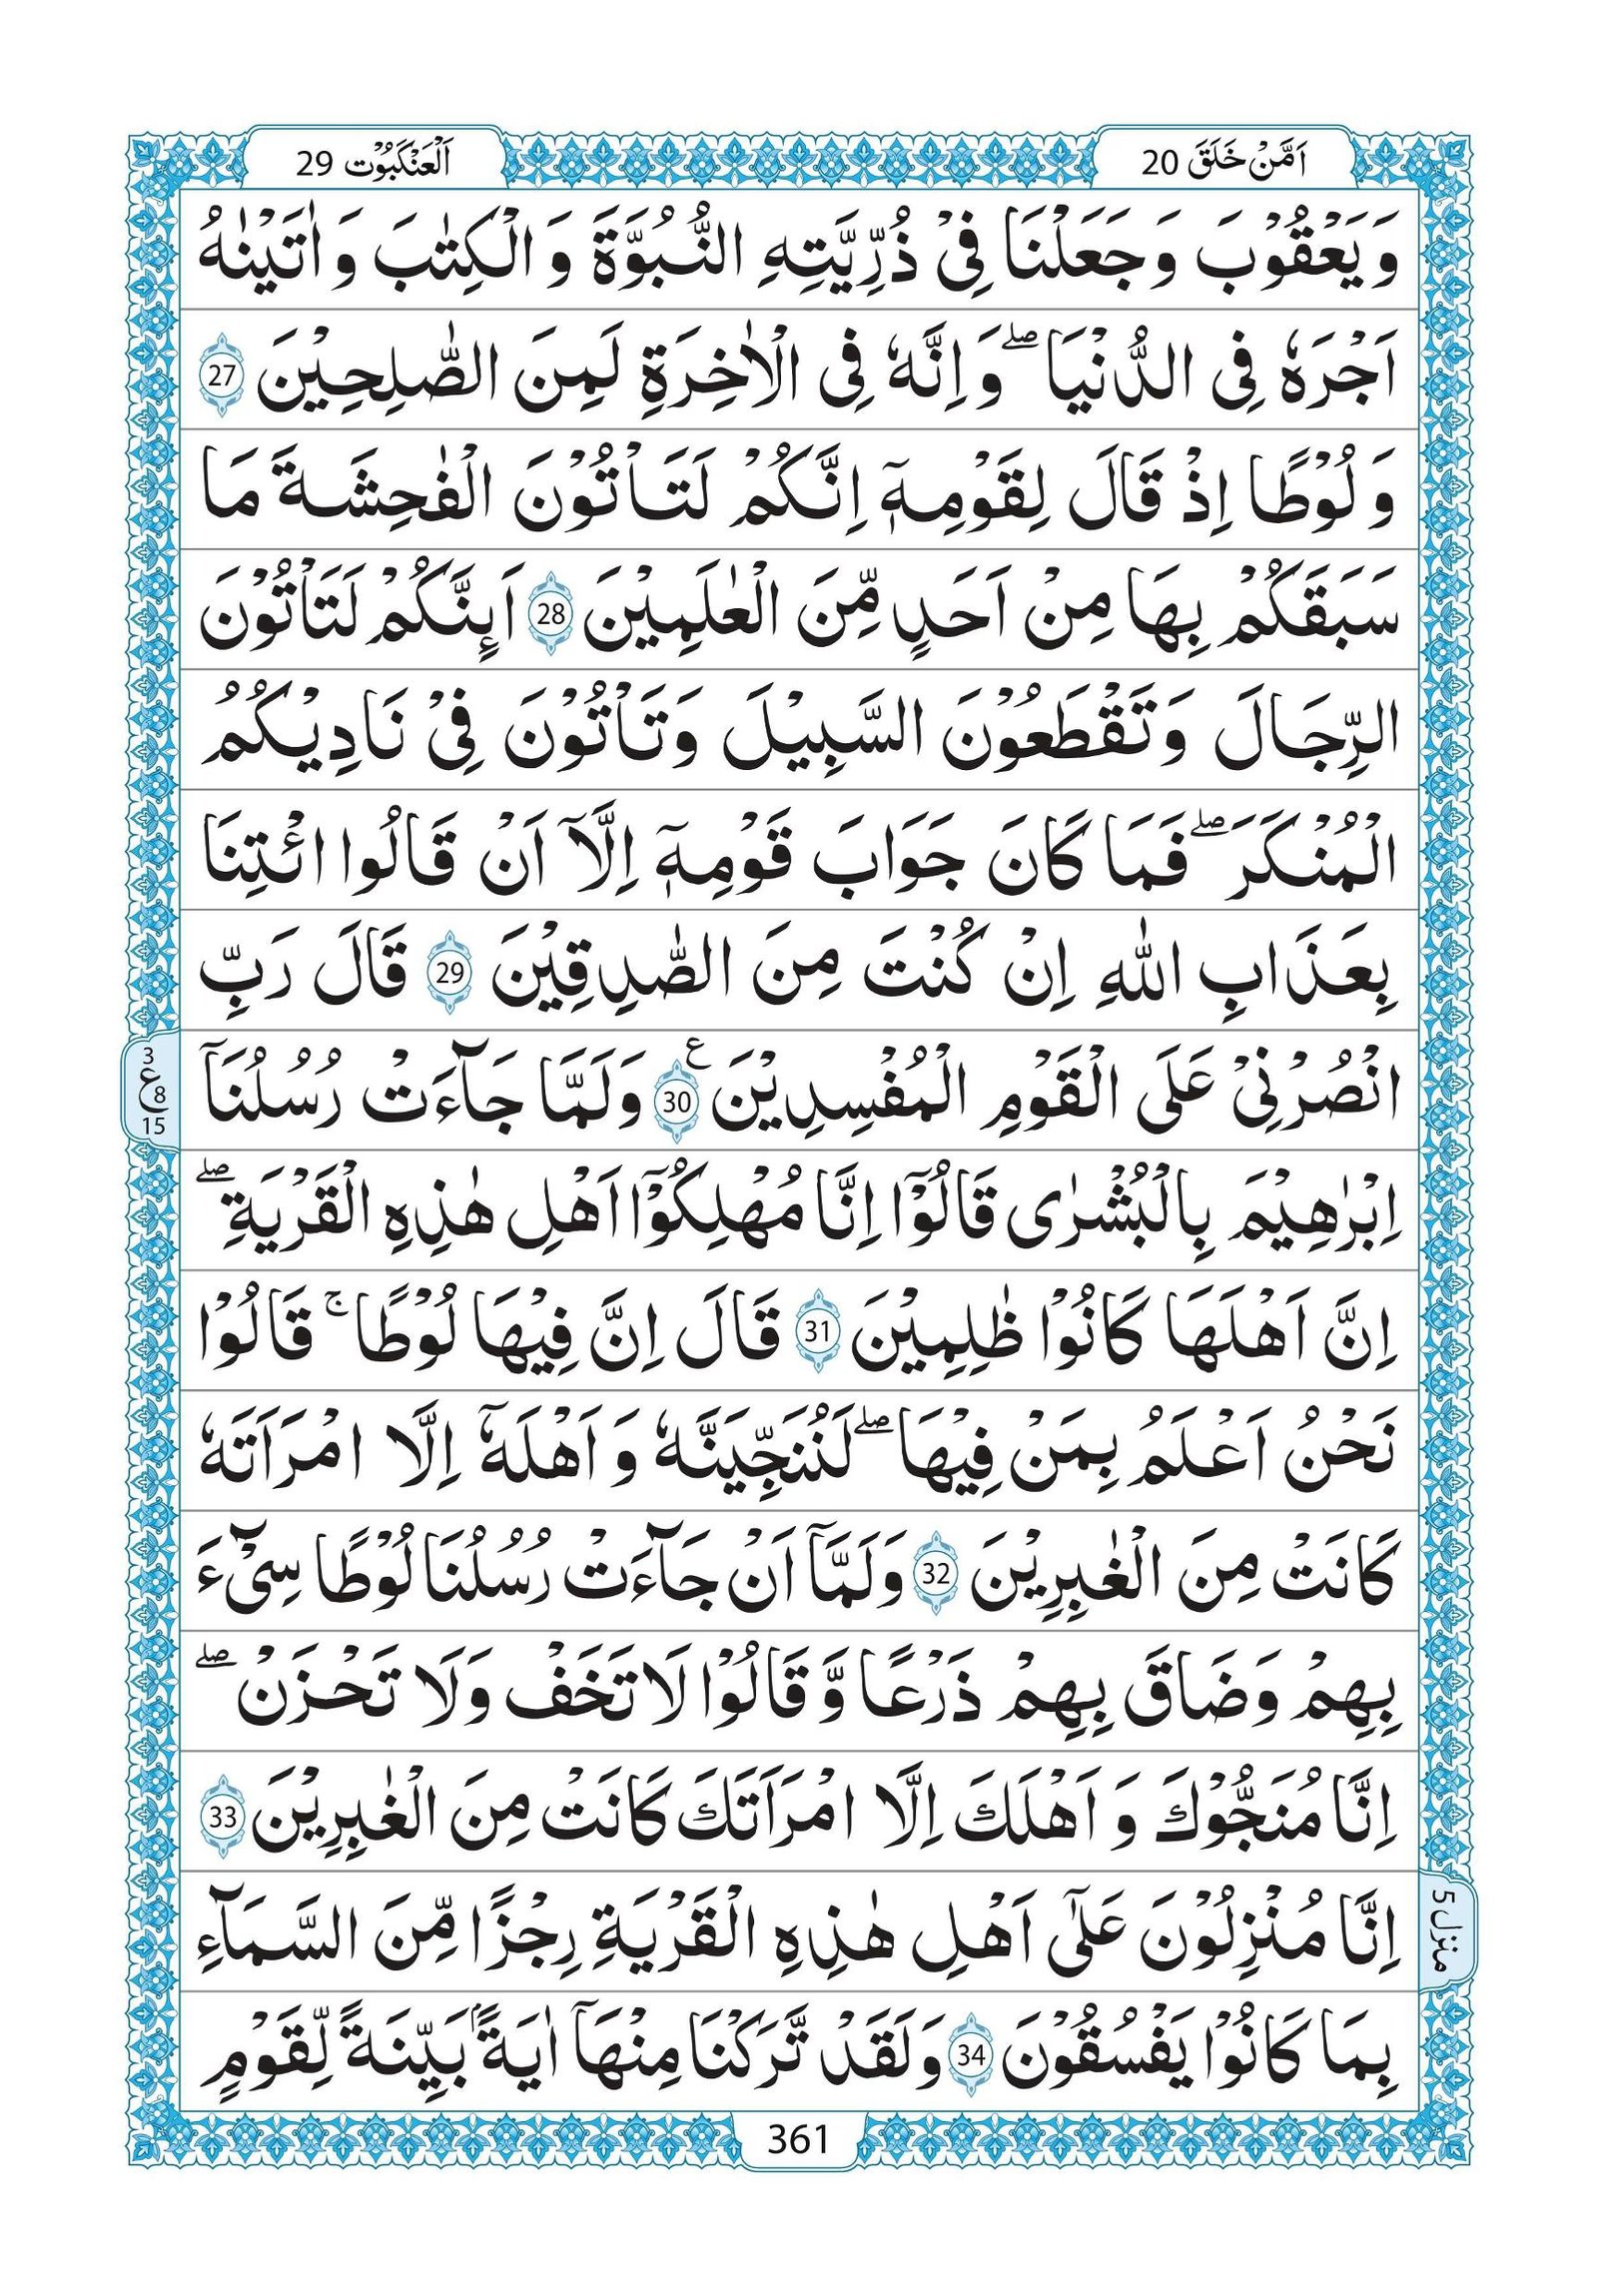 اَمَّنْ خَلَقَ 20
اَلْعَنْكَبُوْت 29
وَ يَعْقُوْبَ وَ جَعَلْنَا فِيْ ذُرِّيَّتِهِ النُّبُوَّةَ وَ الْكِتٰبَ وَ اٰتَيْنٰهُ
اَجْرَهٗ فِي الدُّنْيَا ۖ وَ اِنَّهٗ فِي الْاٰخِرَةِ لَمِنَ الصّٰلِحِيْنَ 27
وَ لُوْطًا اِذْ قَالَ لِقَوْمِهٖٓ اِنَّكُمْ لَتَاْتُوْنَ الْفٰحِشَةَ مَا
سَبَقَكُمْ بِهَا مِنْ اَحَدٍ مِّنَ الْعٰلَمِيْنَ 28 اَىِٕنَّكُمْ لَتَاْتُوْنَ
الرِّجَالَ وَ تَقْطَعُوْنَ السَّبِيْلَ وَ تَاْتُوْنَ فِيْ نَادِيْكُمُ
الْمُنْكَرَ ۖ فَمَا كَانَ جَوَابَ قَوْمِهٖٓ اِلَّآ اَنْ قَالُوا ائْتِنَا
بِعَذَابِ اللّٰهِ اِنْ كُنْتَ مِنَ الصّٰدِقِيْنَ 29 قَالَ رَبِّ
انْصُرْنِيْ عَلَى الْقَوْمِ الْمُفْسِدِيْنَ ع 30 وَلَمَّا جَآءَتْ رُسُلُنَآ
3
ع 8
15
اِبْرٰهِيْمَ بِالْبُشْرٰى قَالُوْٓا اِنَّا مُهْلِكُوْٓا اَهْلِ هٰذِهِ الْقَرْيَةِ ۖ
اِنَّ اَهْلَهَا كَانُوْا ظٰلِمِيْنَ 31 قَالَ اِنَّ فِيْهَا لُوْطًا ۚ قَالُوْا
نَحْنُ اَعْلَمُ بِمَنْ فِيْهَا ۖ لَنُنَجِّيَنَّهٗ وَ اَهْلَهٗٓ اِلَّا امْرَاَتَهٗ
كَانَتْ مِنَ الْغٰبِرِيْنَ 32 وَلَمَّآ اَنْ جَآءَتْ رُسُلُنَا لُوْطًا سِيْٓءَ
بِهِمْ وَضَاقَ بِهِمْ ذَرْعًا وَّ قَالُوْا لَا تَخَفْ وَلَا تَحْزَنْ ۖ
اِنَّا مُنَجُّوْكَ وَ اَهْلَكَ اِلَّا امْرَاَتَكَ كَانَتْ مِنَ الْغٰبِرِيْنَ 33
اِنَّا مُنْزِلُوْنَ عَلٰٓى اَهْلِ هٰذِهِ الْقَرْيَةِ رِجْزًا مِّنَ السَّمَآءِ
منزل 5
بِمَا كَانُوْا يَفْسُقُوْنَ 34 وَلَقَدْ تَّرَكْنَا مِنْهَآ اٰيَةًۢ بَيِّنَةً لِّقَوْمٍ
361